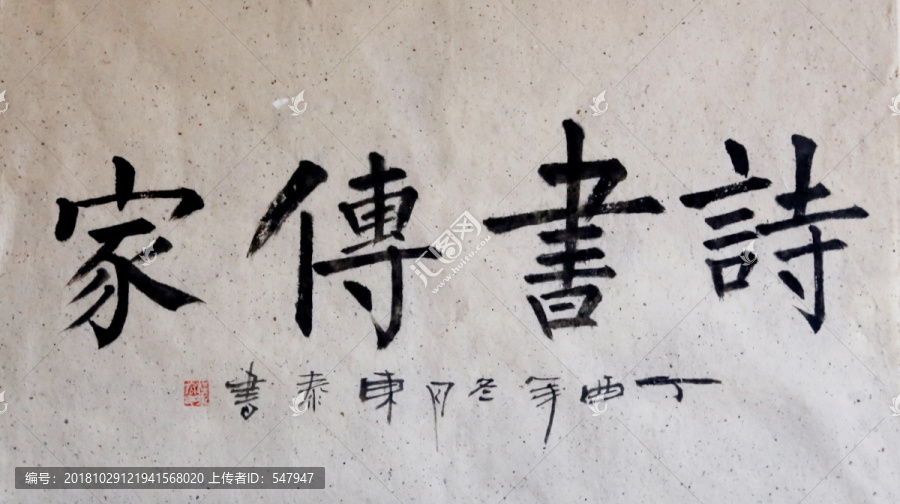 詩書傳家
丁酉年冬月東泰書
汇图网
www.huitu.com
编号：20181029121941568020 上传者ID：547947